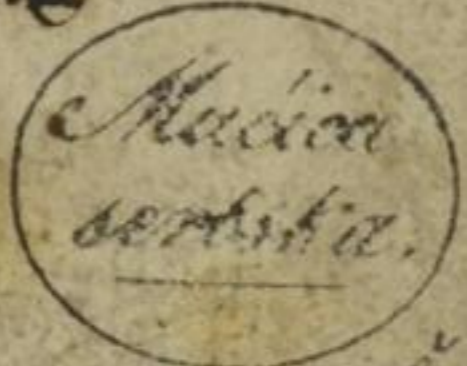 Maćica
serbska.